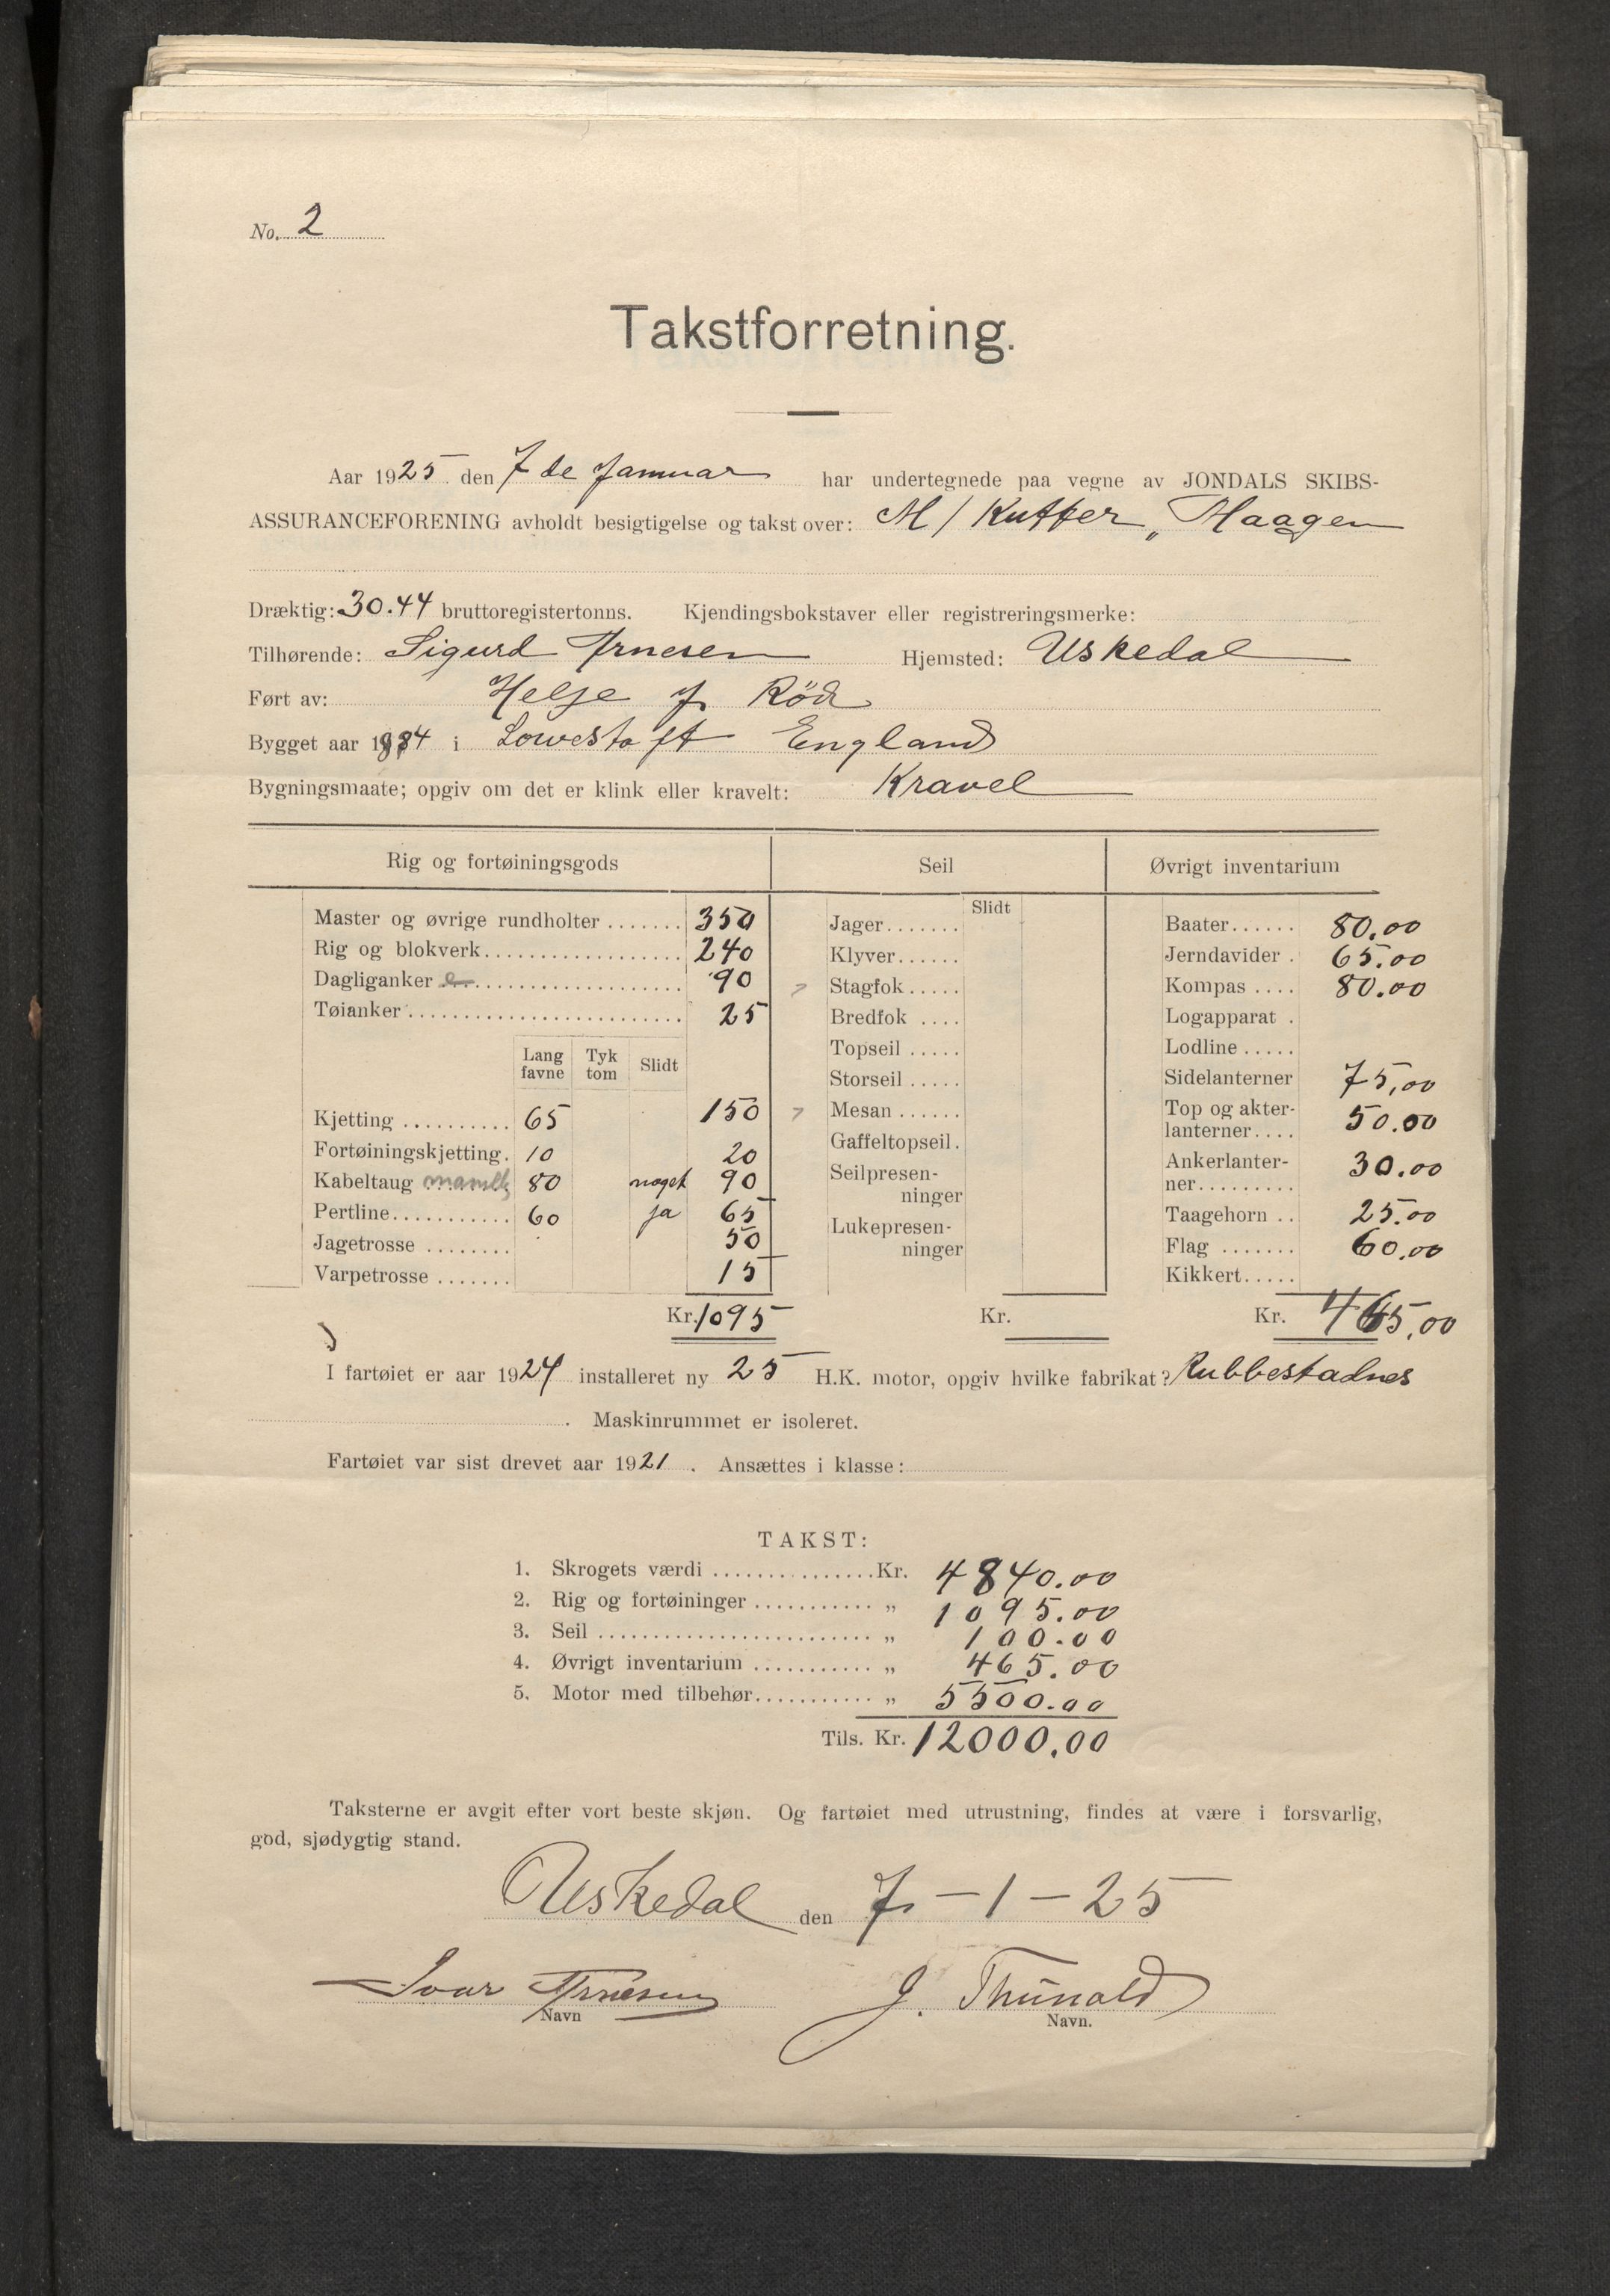 No. 2
Takstforretning.
Aar 1925. den 7 de Januar har undertegnede paa vegne av JONDALS SKIBS-
ASSURANCEFORENING avholdt besigtigelse og takst over: M/ Kutter „Haagen
Dræktig: 30.44 bruttoregistertonns. Kjendingsbokstaver eller registreringsmerke:
Tilhørende: Sigurd Arnesen Hjemsted: Uskedal
Ført av: Helge J. Röd
Bygget aar 1884 i Lowestoft England
Bygningsmaate; opgiv om det er klink eller kravelt: Kravel
Rig og fortøiningsgods Seil Øvrigt inventarium
Slidt
Master og øvrige rundholter 350 Jager Baater 80.00
Rig og blokverk 240 Klyver Jerndavider 65.00
Dagliganker 90 Stagfok Kompas 80.00
Tøianker 25 Bredfok Logapparat
Lang favne Tyk tom Slidt Topseil Lodline
Storseil Sidelanterner 75,00
Kjetting 65 150 Mesan Top og akter-
lanterner 50.00
Fortøiningskjetting 10 20 Gaffeltopseil Ankerlanter-
ner 30.00
Kabeltaug 80 noget 90 Seilpresen-
ninger
Pertline 60 ja 65 Taagehorn 25.00
Jagetrosse 50 Lukepresen-
ninger Flag 60.00
Varpetrosse 15 Kikkert
Kr. 1095 Kr. Kr. 465,00
I fartøiet er aar 1924 installeret ny 25 H.K. motor, opgiv hvilke fabrikat? Rubbestadnes
Maskinrummet er isoleret.
Fartøiet var sist drevet aar 1921. Ansættes i klasse:
TAKST:
1. Skrogets værdi Kr. 4840.00
2. Rig og fortøininger „ 1095.00
3. Seil „ 100.00
4. Øvrigt inventarium „ 465.00
5. Motor med tilbehør „ 5500.00
Tils. Kr. 12000.00
Taksterne er avgit efter vort beste skjøn. Og fartøiet med utrustning, findes at være i forsvarlig,
god, sjødygtig stand.
Uskedal den 7-1-25
Ivar Arnesen J. Thunold
Navn Navn.